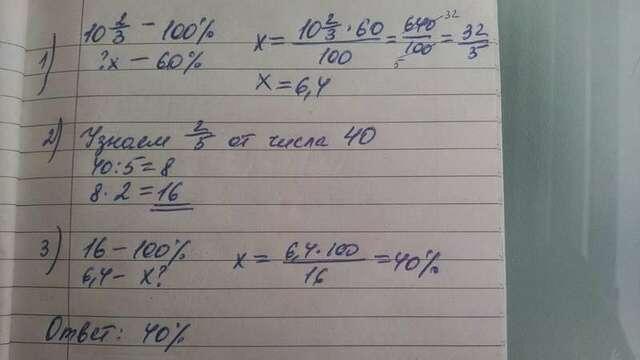 1) 10 2/3 – 100%
?x – 60%
x = (10 2/3 · 60)/100 = 640/100 = 32/5
32
5
x = 6,4
2) Узнаем 2/5 от числа 40
40:5=8
8·2=16
3) 16 – 100%
6,4 – x?
x = (6,4·100)/16 = 40%
Ответ: 40%